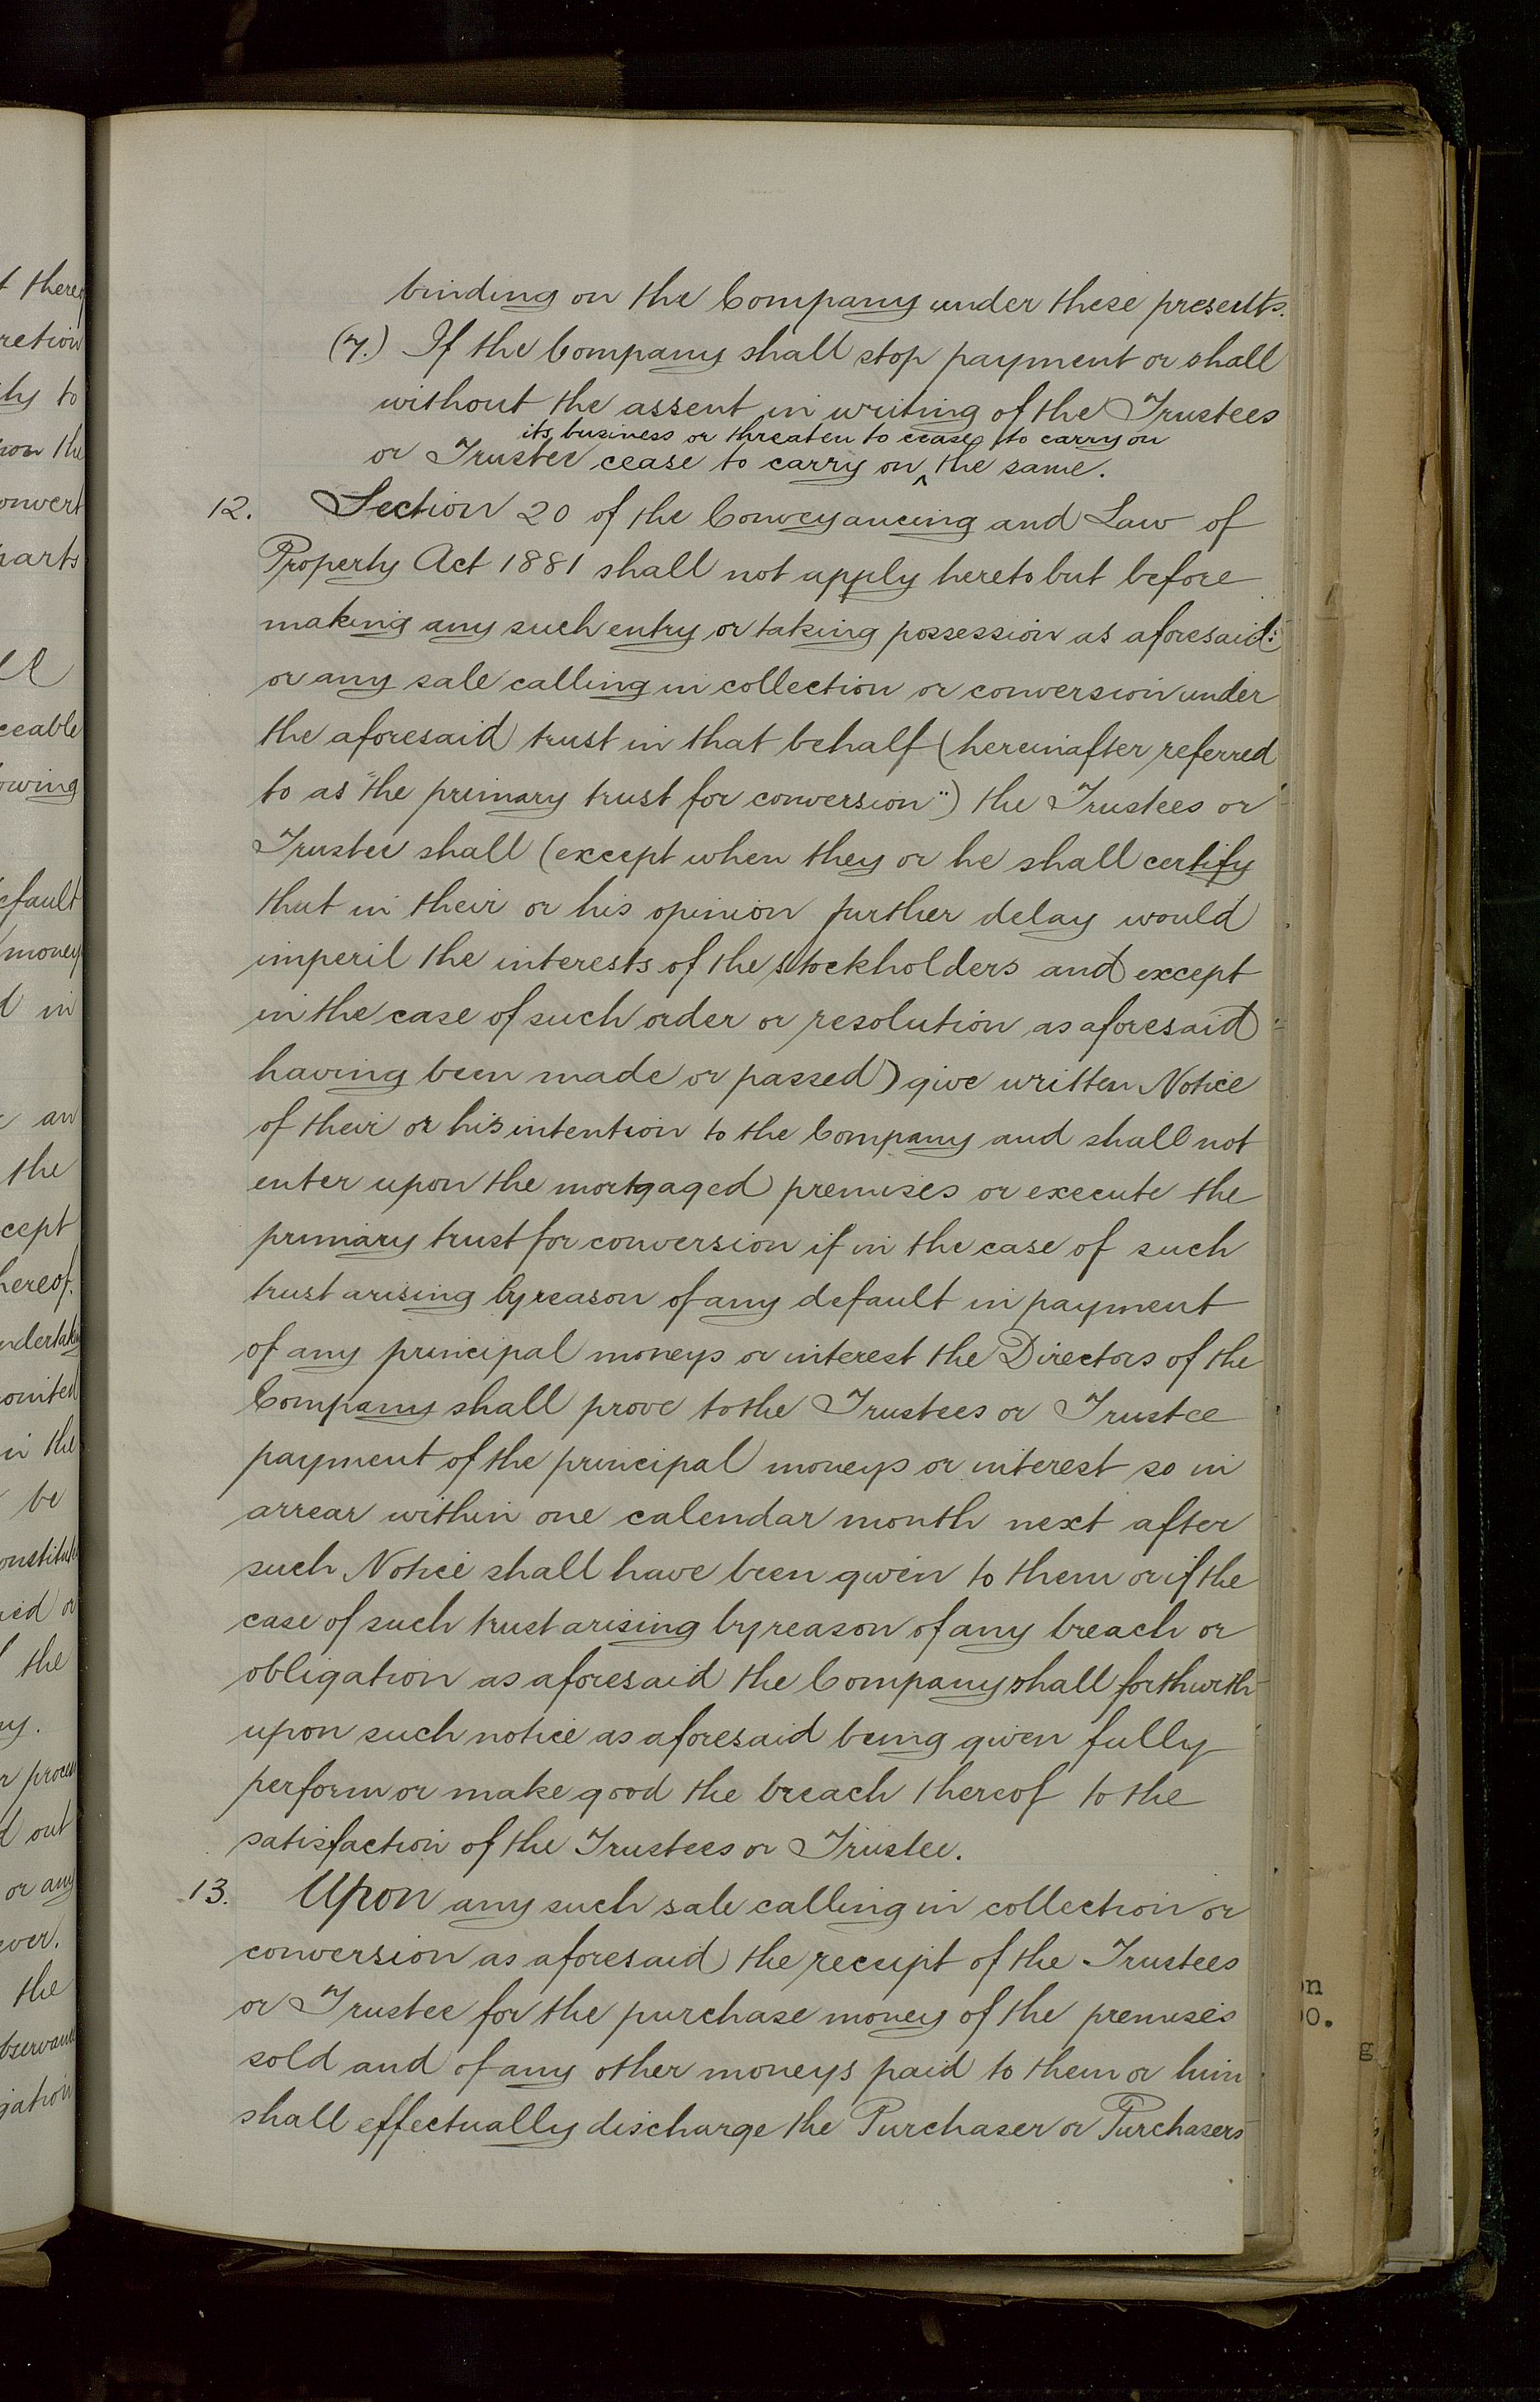 binding on the Company under these presents.
(7.) If the Company shall stop payment or shall
without the assent in writing of the Trustees
its business or threaten to cease to carry on
or Trustee cease to carry on ^ the same.
12. Section 20 of the Conveyancing and Law of
Property Act 1881 shall not apply hereto but before
making any such entry or taking possession as aforesaid:
or any sale calling in collection or conversion under
the aforesaid trust in that behalf (hereinafter referred
to as "the primary trust for conversion") the Trustees or
Trustee shall (except when they or he shall certify
that in their or his opinion further delay would
imperil the interests of the stockholders and except
in the case of such order or resolution as aforesaid
having been made or passed) give written Notice
of their or his intention to the Company and shall not
enter upon the mortgaged premises or execute the
primary trust for conversion if in the case of such
trust arising by reason of any default in payment
of any principal moneys or interest the Directors of the
Company shall prove to the Trustees or Trustee
payment of the principal moneys or interest so in
arrear within one calendar month next after
such Notice shall have been given to them or if the
case of such trust arising by reason of any breach or
obligation as aforesaid the Company shall forthwith
upon such notice as aforesaid being given fully
perform or make good the breach thereof to the
satisfaction of the Trustees or Trustee.
13. Upon any such sale calling in collection or
conversion as aforesaid the receipt of the Trustees
or Trustee for the purchase money of the premises
sold and of any other moneys paid to them or him
shall effectually discharge the Purchaser or Purchasers